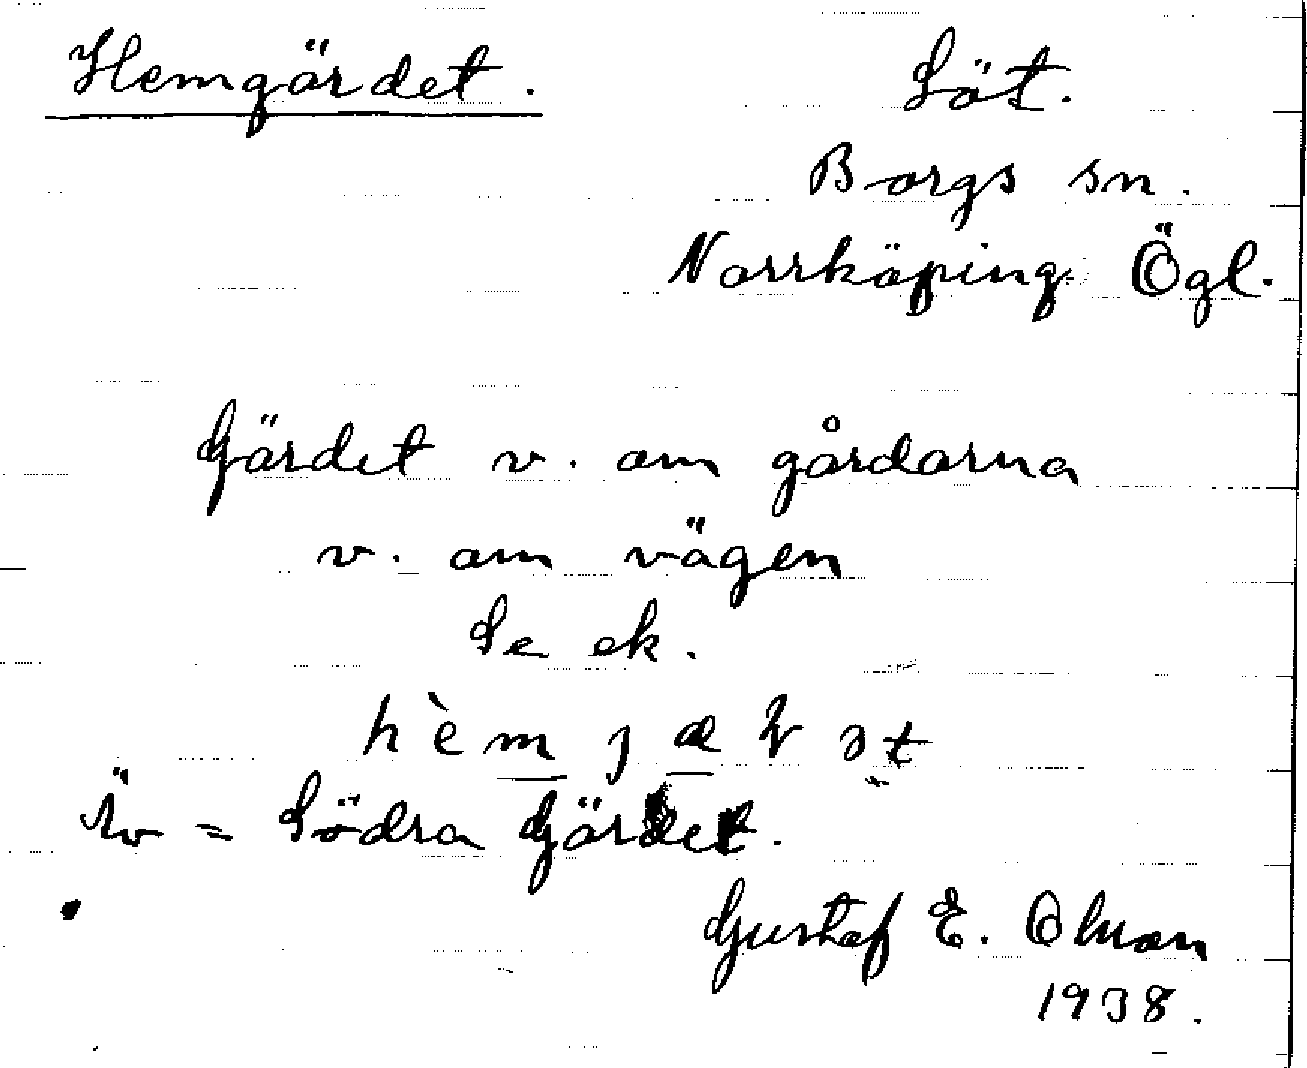 Hemgärdet. Söt.
Borgs sn.
Norrköping Ögl.
Gärdet v. om gårdarna
v. om vägen
Se ek.
hèm j æ ət
= Södra Gärdet.
Gustaf E. Olsson
1938.